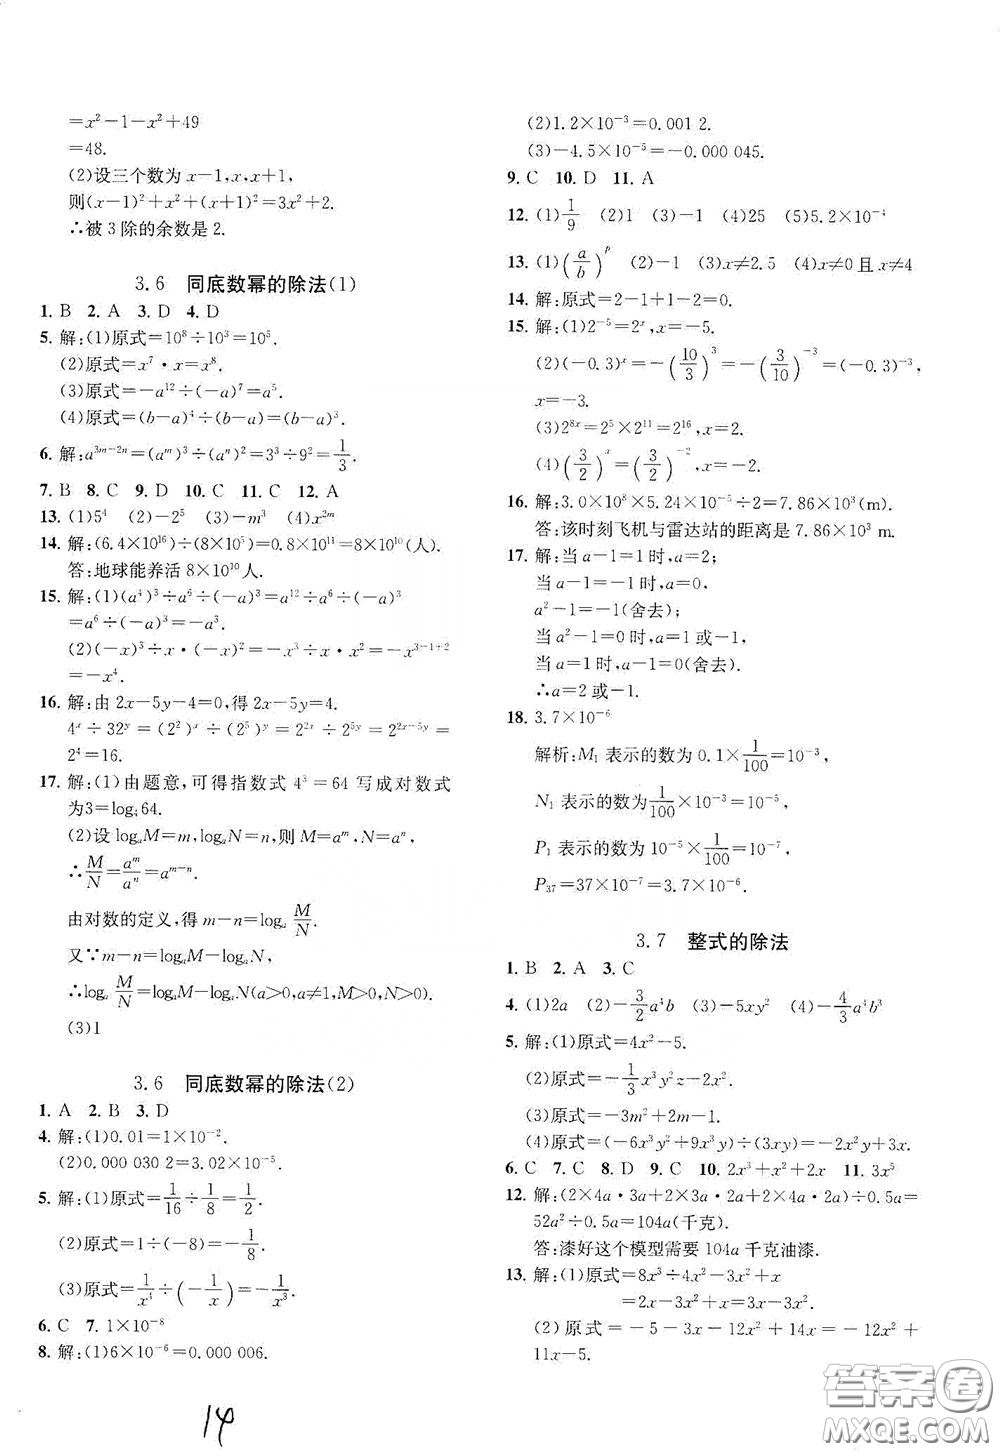 =x²-1-x²+49
=48.
(2)设三个数为 x-1,x,x+1,
则(x-1)²+x²+(x+1)²=3x²+2.
∴被 3 除的余数是 2.
3.6 同底数幂的除法(1)
1. B 2. A 3. D 4. D
5. 解:(1)原式=10⁸÷10³=10⁵.
(2)原式=x⁷·x=x⁸.
(3)原式=-a¹²÷(-a)⁷=a⁵.
(4)原式=(b-a)⁴÷(b-a)=(b-a)³.
6. 解:a³ᵐ⁻²ⁿ=(aᵐ)³÷(aⁿ)²=3³÷9²=1/3.
7. B 8. C 9. D 10. C 11. C 12. A
13. (1)5⁴ (2)-2⁵ (3)-m³ (4)x²ᵐ
14. 解:(6.4×10¹⁶)÷(8×10⁵)=0.8×10¹¹=8×10¹⁰(人).
答:地球能养活 8×10¹⁰人.
15. 解:(1)(a⁴)³÷a⁶÷(-a)³=a¹²÷a⁶÷(-a)³
=a⁶÷(-a)³=-a³.
(2)(-x)³÷x·(-x)²=-x³÷x·x²=-x³⁻¹⁺²
=-x⁴.
16. 解:由 2x-5y-4=0,得 2x-5y=4.
4ˣ÷32ʸ=(2²)ˣ÷(2⁵)ʸ=2²ˣ÷2⁵ʸ=2²ˣ⁻⁵ʸ=
2⁴=16.
17. 解:(1)由题意,可得指数式 4³=64 写成对数式
为3=log₄64.
(2)设 logₐM=m,logₐN=n,则 M=aᵐ,N=aⁿ,
∴M/N=aᵐ/aⁿ=aᵐ⁻ⁿ.
由对数的定义,得 m-n=logₐ M/N.
又∵m-n=logₐM-logₐN,
∴logₐ M/N=logₐM-logₐN(a>0,a≠1,M>0,N>0).
(3)1
3.6 同底数幂的除法(2)
1. A 2. B 3. D
4. 解:(1)0.01=1×10⁻².
(2)0.000 030 2=3.02×10⁻⁵.
5. 解:(1)原式=1/16÷1/8=1/2.
(2)原式=1÷(-8)=-1/8.
(3)原式=1/x⁴÷(-1/x)=-1/x³.
6. C 7. 1×10⁻⁸
8. 解:(1)6×10⁻⁶=0.000 006.
14
(2)1.2×10⁻³=0.001 2.
(3)-4.5×10⁻⁵=-0.000 045.
9. C 10. D 11. A
12. (1)1/9 (2)1 (3)-1 (4)25 (5)5.2×10⁻⁴
13. (1)(a/b)ᵖ (2)-3 (3)x≠2.5 (4)x≠0 且 x≠4
14. 解:原式=2-1+1-2=0
15. 解:(1)2⁻⁵=2ˣ,x=-5.
(2)(-0.3)ˣ=-(10/3)³=-(3/10)⁻³=(-0.3)⁻³,
x=-3.
(3)2⁸ˣ=2⁵×2¹¹=2¹⁶,x=2.
(4)(3/2)ˣ=(3/2)⁻²,x=-2.
16. 解:3.0×10⁸×5.24×10⁻⁵÷2=7.86×10³(m).
答:该时刻飞机与雷达站的距离是 7.86×10³ m.
17. 解:当 a-1=1 时,a=2;
当 a-1=-1 时,a=0,
a²-1=-1(舍去);
当 a²-1=0 时,a=1 或-1,
当 a=1时,a-1=0(舍去).
∴a=2 或-1.
18. 3.7×10⁻⁶
解析:M₁ 表示的数为 0.1×1/100=10⁻³,
N₁ 表示的数为1/100×10⁻³=10⁻⁵,
P₁ 表示的数为 10⁻⁵×1/100=10⁻⁷,
P₃₇=37×10⁻⁷=3.7×10⁻⁶.
3.7 整式的除法
1. B 2. A 3. C
4. (1)2a (2)-3/2a⁴b (3)-5xy² (4)-4/3a⁴b³
5. 解:(1)原式=4x²-5.
(2)原式=-1/3x³y²z-2x².
(3)原式=-3m²+2m-1.
(4)原式=(-6x³y²+9x³y)÷(3xy)=-2x²y+3x².
6. C 7. C 8. D 9. C 10. 2x³+x²+2x 11. 3x⁵
12. 解:(2×4a·3a+2×4a·2a+2×2a·3a)÷0.5a=
52a²÷0.5a=104a(千克).
答:漆好这个模型需要 104a 千克油漆.
13. 解:(1)原式=8x³÷4x²-3x²+x
=2x-3x²+x=3x-3x².
(2)原式=-5-3x-12x²+14x=-12x²+
11x-5.
答案圈
MXQE.COM